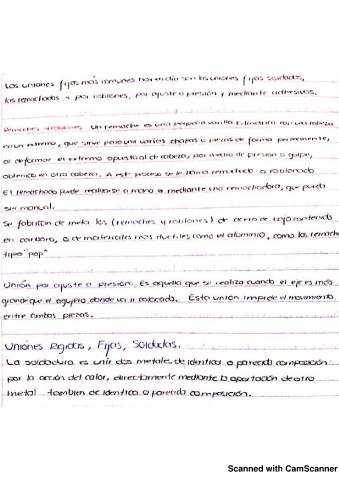 Las uniones fijas más comunes hoy en día son las uniones fijas soldadas,
las remachadas y por roblones, por ajuste a presión y mediante adhesivos.
Remaches y roblones. Un remache es una pequeña varilla cilíndrica con una cabeza
en un extremo, que sirve para unir varias chapas o piezas de forma permanente,
al deformar el extremo opuesto al de cabeza, por medio de presion o golpe,
obteniendo en otra cabeza. A este proceso se le llama remachado o roblonado
El remachado puede realizarse a mano o mediante una remachadora, que puede
ser manual.
Se fabrican de meta los (remaches y roblones) de acero de bajo contenido
en carbono, o de materiales mas ductiles como el aluminio, como los remaches
tipo "pop"
Unión por ajuste a presión. Es aquella que se realiza cuando el eje es más
grande que el agujero donde va a colocado. Esta unión impide el movimiento
entre ambas piezas.
Uniones Rigidas, Fijas, Soldadas.
La soldadura es unir dos metales de identica o parecida composición
por la acción del calor, directamente mediante la aportación de otro
metal tambien de identica o parecida composición.
Scanned with CamScanner